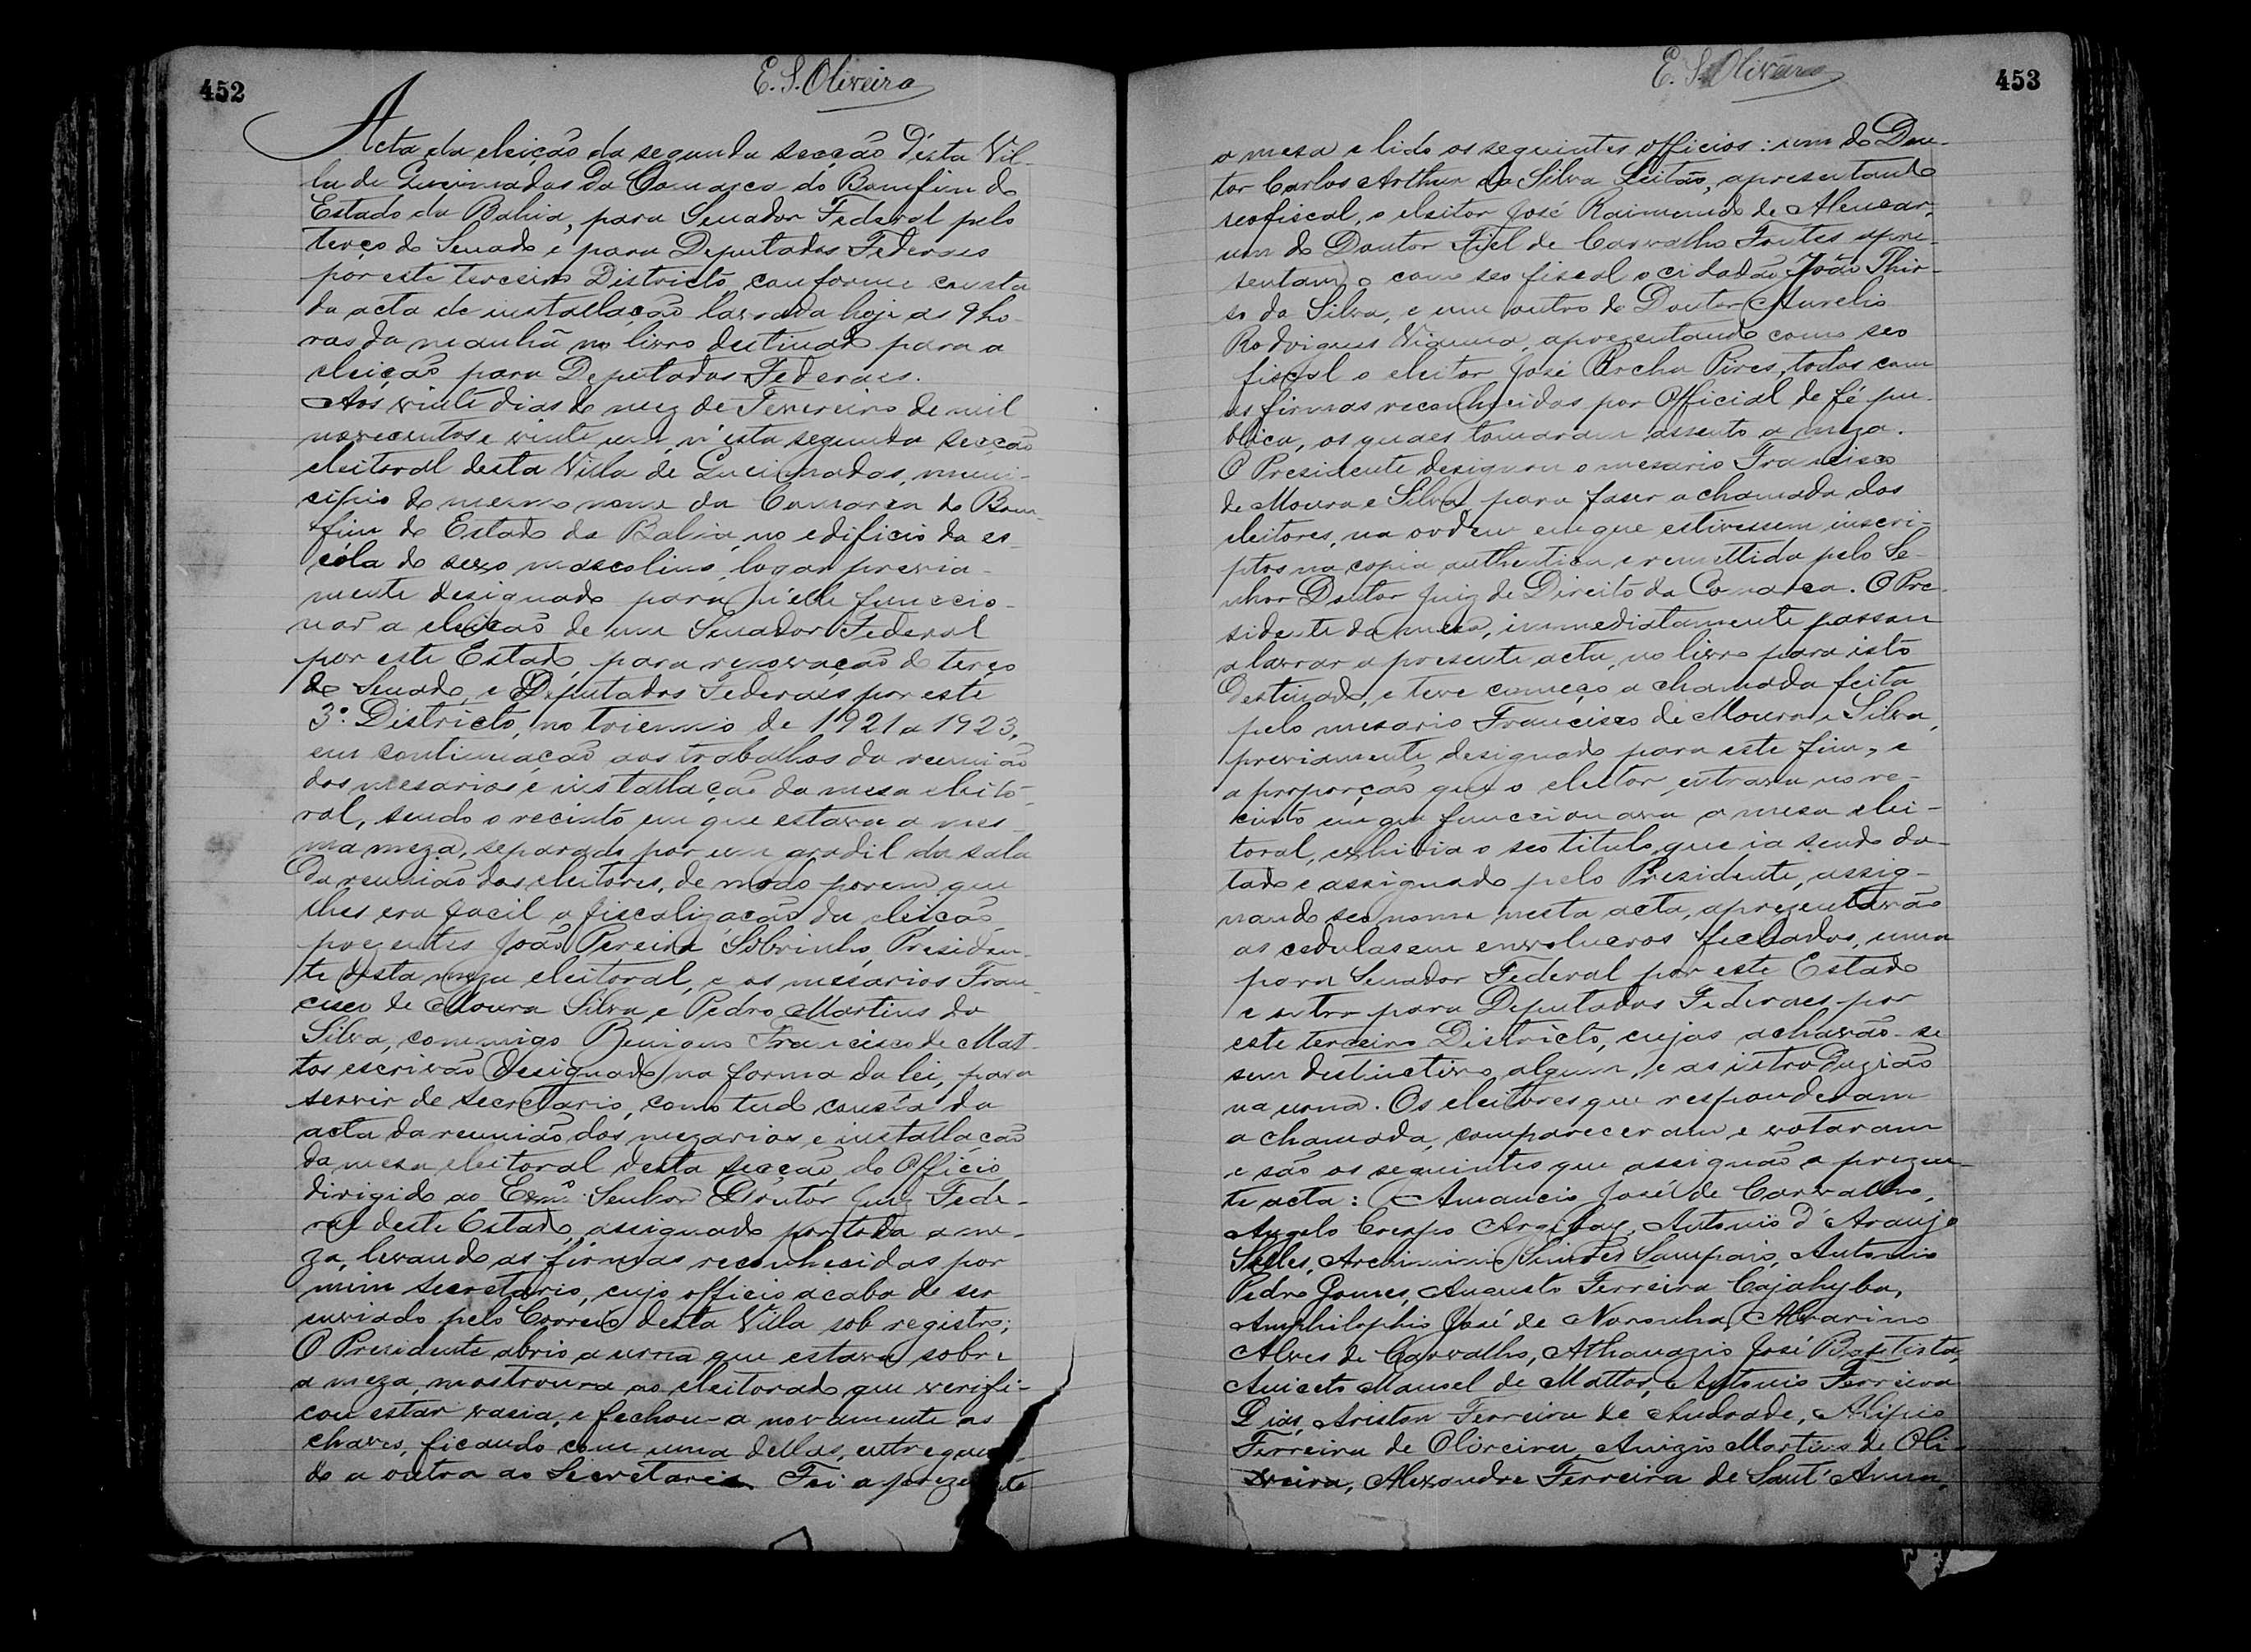 452
E. S. Oliveira
Acta da eleição da segunda secção d'esta Vil-
la de Queimadas da Comarca do Bomfim do
Estado da Bahia, para Senador Federal pelo
terço do Senado e para Deputados Federaes
por este terceiro Districto, conforme consta
da acta de installação lavrada hoje as 9 ho-
ras da manhã no livro destinado para a
eleição para Deputados Federaes.
Aos vinte dias do mez de Fevereiro de mil
novecentos e vinte um, n'esta segunda secção
eleitoral desta Villa de Queimadas, muni-
cipio do mesmo nome da Comarca do Bom-
fim do Estado da Bahia, no edificio da es-
cóla do sexo mascolino, logar previa-
mente designado para n'elle funccio-
nar a eleição de um Senador Federal
por este Estado, para renovação do terço
do Senado, e Deputados Federaes por este
3º Districto, no triennio de 1921 a 1923,
em continuação aos trabalhos da reunião
dos mesarios e installação da mesa eleito-
ral, sendo o recinto em que estava a mes-
ma meza, separado por um gradil da sala
da reunião dos eleitores, de modo porem que
lhes era facil a fiscalização da eleição,
prezentes João Pereira Sobrinho, Presiden-
te desta meza eleitoral, e os mesarios Fran-
cisco de Moura Silva e Pedro Martins da
Silva, commigo Benigno Francisco de Mat-
tos escrivão designado na forma da lei, para
servir de secretario, como tudo consta da
acta da reunião dos mezarios e installação
da mesa eleitoral desta secção, do Officio
dirigido ao Exmº Senhor Doutor Juiz Fede-
ral deste Estado, assignado por toda a me-
za, levando as firmas reconhecidas por
mim secretario, cujo officio acaba de ser
enviado pelo Correio desta Villa sob registro;
O Presidente abrio a urna que estava sobre
a meza, mostrou-a ao eleitorado que verifi-
cou estar vasia, e fechou-a novamente as
chaves, ficando com uma dellas, entregan-
do a outra ao Secretario. Foi aprezentado
453
E. S. Oliveira
a mesa e lido os seguintes officios: um do Dou-
tor Carlos Arthur da Silva Leitão, apresentando
seo fiscal, o eleitor José Raimundo de Alencar,
um do Doutor Fiel de Carvalho Fontes apre-
sentando como seo fiscal o cidadão João Thir-
so da Silva, e um outro do Doutor Aurelio
Rodrigues Vianna, aprezentando como seo
fiscal o eleitor José Rocha Pires, todos com
as firmas reconhecidas por Official de fé pu-
blica, os quaes tomaram assento a meza.
O Presidente designou o mesario Francisco
de Moura e Silva para faser a chamada dos
eleitores, na ordem em que estivessem inscri-
ptos na copia authentica e remettida pelo Se-
nhor Doutor Juiz de Direito da Comarca. O Pre-
sidente da mesa, immediatamente passou
a lavrar a presente acta, no livro para isto
destinado, e teve começo a chamada feita
pelo mesario Francisco de Moura e Silva,
previamente designado para este fim, e
a proporção que o eleitor entrava no re-
cinto em que funccionava a mesa elei-
toral, exhibia o seo titulo, que ia sendo da-
tado e assignado pelo Presidente, assig-
nando seo nome nesta acta, aprezentavão
as cedulas em envolucros fechados, uma
para Senador Federal por este Estado
e outra para Deputados Federaes por
este terceiro Districto, cujas achavão-se
sem destinctivo algum, e as introduzião
na urna. Os eleitores que responderam
a chamada, compareceram e votaram
e são os seguintes que assignão a prezen-
te acta: Amancio José de Carvalho,
Angelo Crespo Argibay, Antonio d'Araujo
Salles, Archimimi Simões Sampaio, Antonio
Pedro Gomes, Augusto Ferreira Cajahyba,
Amphilophio José de Noronha, Alvarino
Alves de Carvalho, Athanazio José Baptista,
Aniceto Manoel de Mattos, Antonio Ferreira
Dias, Ariston Ferreira de Andrade, Alipio
Ferreira de Oliveira, Anizio Martins de Oli-
veira, Alexandre Ferreira de Sant'Anna,